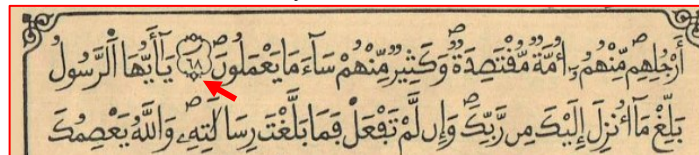 أَرْجُلِهِمۖ مِّنْهُمُۥٓ أُمَّةٌ مُّقْتَصِدَةٌۖ وَكَثِيرٌ مِّنْهُمْ سَآءَ مَا يَعْمَلُونَۖ ٦٨ يَٰٓأَيُّهَا ٱلرَّسُولُ
بَلِّغْ مَآ أُنزِلَ إِلَيْكَ مِن رَّبِّكَۖ وَإِن لَّمْ تَفْعَلْ فَمَا بَلَّغْتَ رِسَالَٰتِهِۦۖ وَٱللَّهُ يَعْصِمُكَ